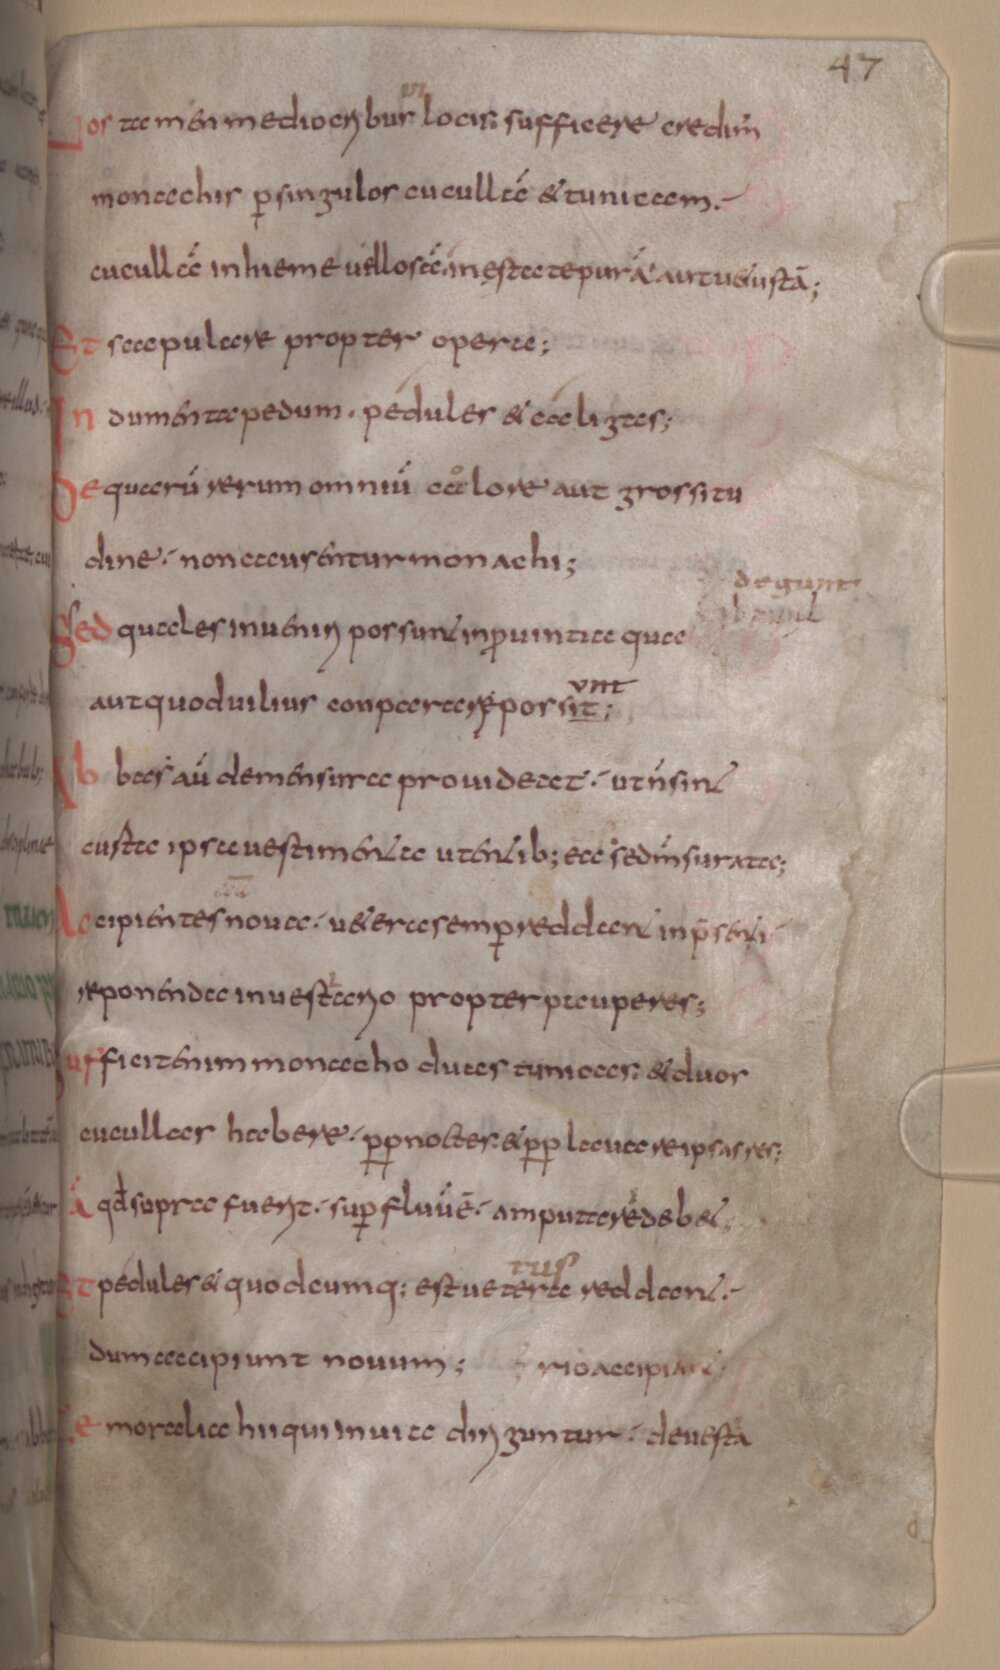 47
Nos tamen mediocribus locis sufficere credim̄
monachis ꝑ singulos cucullā & tunicam.
cucullā in hieme uellosā in estate purā aut uetustā;
Et scapulare propter opera;
Indumenta pedum. pedules & caligas;
De quarū rerum omniū colore aut grossitu
dine. non causentur monachi;
degunt
Sed quales inueniri possunt in prouintia qua
unt
aut quod uilius conparare possit;
Abbas aū de mensura prouideat. ut n̄ sint
custa ipsa uestimenta utentib; ea sed m̄surata;
Accipientes noua. uetera semꝑ reddant in p̄senti
reponenda in uestiario propter pauperes;
Sufficit enim monacho duas tunicas. & duos
cucullas habere. ꝓꝑ noctes & ꝓꝑ lauare ipsas res;
Iā qd̄ supra fuerit. suꝑfluū ē. amputare debet;
tus
Et pedules & quodcumq; est uetere reddant.
dum accipiunt nouum; rio accipiant
Femoralia hii qui in uia diriguntur. de uesta